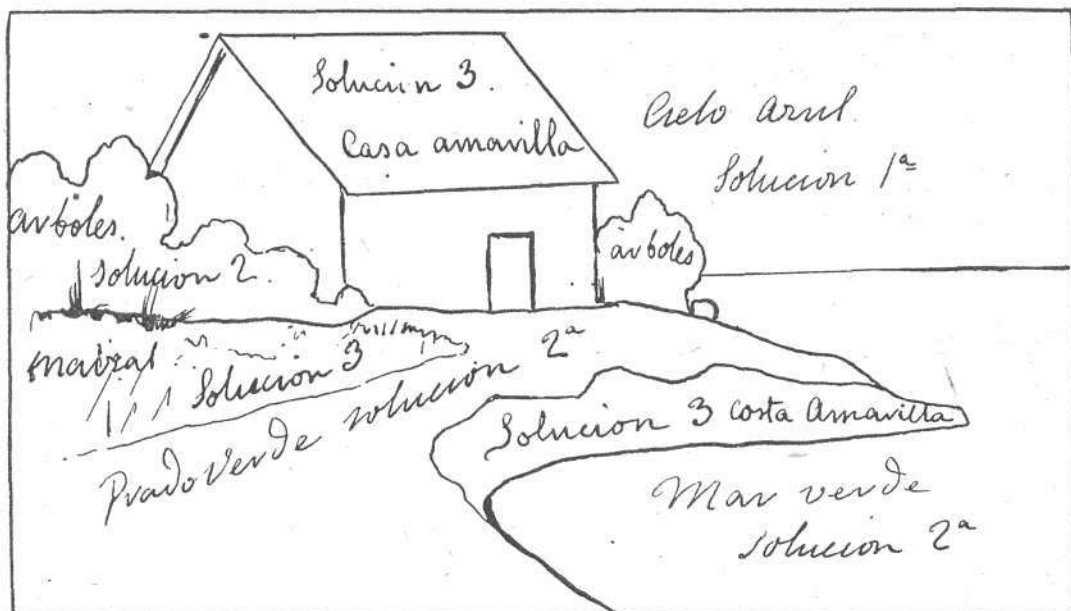 Solución 3.
Casa amarilla
Cielo azul.
Solución 1ª
árboles.
solución 2.
árboles
maizal
Solución 3
Prado verde solución 2ª
Solución 3 costa Amarilla
Mar verde
solución 2ª